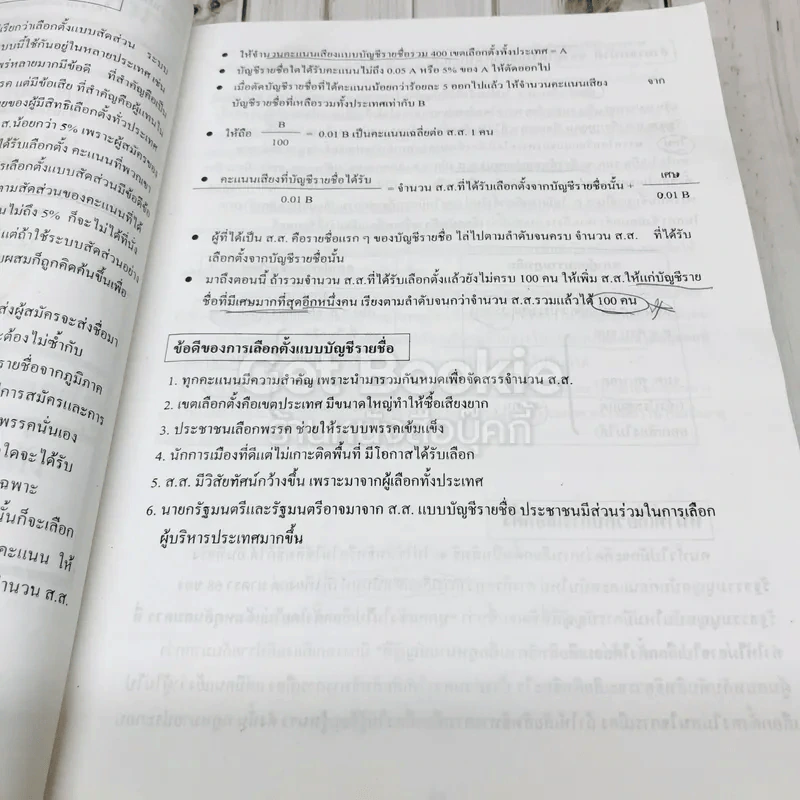 เรียกว่าเลือกตั้งแบบสัดส่วน ระบบ
แบบนี้ใช้กันอยู่ในหลายประเทศ เช่น
แพร่หลายมากมีข้อดี ที่สำคัญคือเป็น
แต่มีข้อเสีย ที่สำคัญคือผู้แทนใน
ของผู้มีสิทธิเลือกตั้งทั่วประเทศ
ส.น้อยกว่า 5% เพราะผู้สมัครของ
ได้รับเลือกตั้ง คะแนนที่พวกเขา
การเลือกตั้งแบบสัดส่วนมีข้อดีข้อ
ตามสัดส่วนของคะแนนที่ได้
ไม่ถึง 5% ก็จะไม่ได้ที่นั่ง
แต่ถ้าใช้ระบบสัดส่วนอย่าง
ผสมก็ถูกคิดค้นขึ้นเพื่อ
ส่งผู้สมัครจะส่งชื่อมา
จะต้องไม่ซ้ำกับ
รายชื่อจากภูมิภาค
การสมัครและการ
พรรคนั่นเอง
ใดจะได้รับ
เฉพาะ
นั้นก็จะเลือก
คะแนน ให้
จำนวน ส.ส.
• ให้จำนวนคะแนนเสียงแบบบัญชีรายชื่อรวม 400 เขตเลือกตั้งทั้งประเทศ = A
• บัญชีรายชื่อใดได้รับคะแนนไม่ถึง 0.05 A หรือ 5% ของ A ให้ตัดออกไป
• เมื่อตัดบัญชีรายชื่อที่ได้คะแนนน้อยกว่าร้อยละ 5 ออกไปแล้ว ให้จำนวนคะแนนเสียง จาก
บัญชีรายชื่อที่เหลือรวมทั้งประเทศเท่ากับ B
• ให้ถือ B/100 = 0.01 B เป็นคะแนนเฉลี่ยต่อ ส.ส. 1 คน
• คะแนนเสียงที่บัญชีรายชื่อได้รับ/0.01 B = จำนวน ส.ส.ที่ได้รับเลือกตั้งจากบัญชีรายชื่อนั้น + เศษ/0.01 B
• ผู้ที่ได้เป็น ส.ส. คือรายชื่อแรก ๆ ของบัญชีรายชื่อ ไล่ไปตามลำดับจนครบ จำนวน ส.ส. ที่ได้รับ
เลือกตั้งจากบัญชีรายชื่อนั้น
• มาถึงตอนนี้ ถ้ารวมจำนวน ส.ส.ที่ได้รับเลือกตั้งแล้วยังไม่ครบ 100 คน ให้เพิ่ม ส.ส.ให้แก่บัญชีราย
ชื่อที่มีเศษมากที่สุดอีกหนึ่งคน เรียงตามลำดับจนกว่าจำนวน ส.ส.รวมแล้วได้ 100 คน
ข้อดีของการเลือกตั้งแบบบัญชีรายชื่อ
1. ทุกคะแนนมีความสำคัญ เพราะนำมารวมกันหมดเพื่อจัดสรรจำนวน ส.ส.
2. เขตเลือกตั้งคือเขตประเทศ มีขนาดใหญ่ทำให้ซื้อเสียงยาก
3. ประชาชนเลือกพรรค ช่วยให้ระบบพรรคเข้มแข็ง
4. นักการเมืองที่ดีแต่ไม่เกาะติดพื้นที่ มีโอกาสได้รับเลือก
5. ส.ส. มีวิสัยทัศน์กว้างขึ้น เพราะมาจากผู้เลือกทั้งประเทศ
6. นายกรัฐมนตรีและรัฐมนตรีอาจมาจาก ส.ส. แบบบัญชีรายชื่อ ประชาชนมีส่วนร่วมในการเลือก
ผู้บริหารประเทศมากขึ้น
Get Bookie
ร้านหนังสือบุ๊คกี้